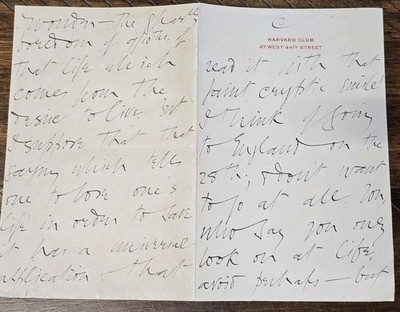 wonder – the
boredom of
that life which
comes from the
desire to live, but
I suppose that that
saying which tells
one to lose one's
life in order to save
it has a universal
application – that
2
HARVARD CLUB
27 WEST 44TH STREET
read it with that
faint cryptic smile!
I think of going
to England on the
28th, & don't want
to go at all. You
who say you only
look on at life,
avoid perhaps – but